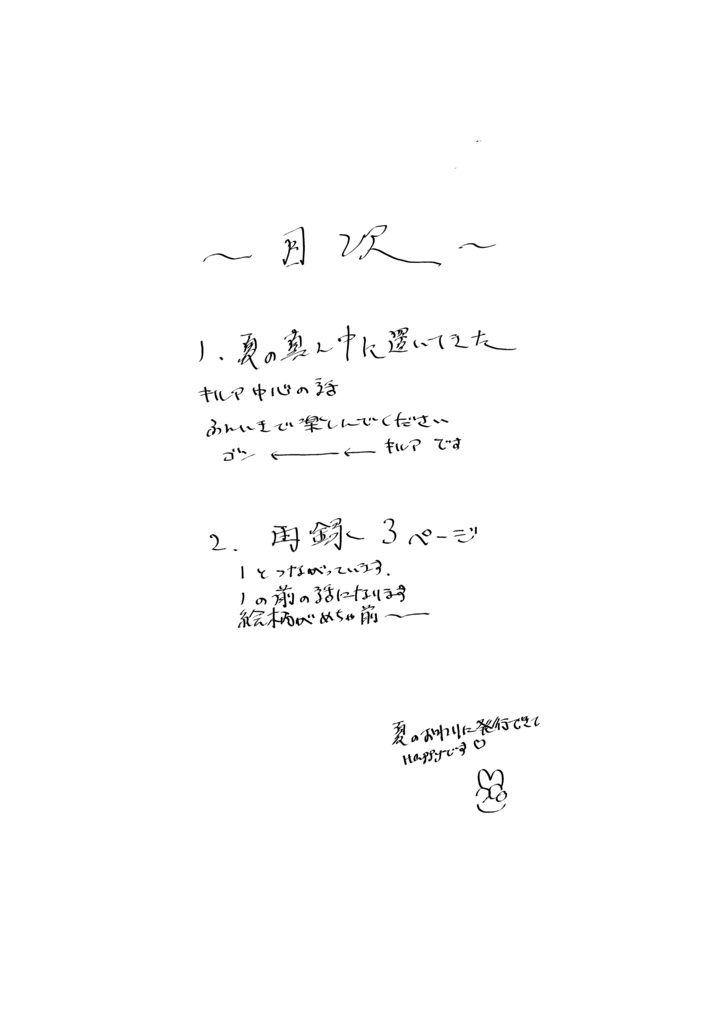 ～ 目次 ～
1. 夏の真ん中に置いてきた
キルア中心の話
ふんいきで楽しんでください
ゴン ←── ←─ キルア です
2. 再録 3ページ
1とつながっています.
1の前の話になります
絵柄がめちゃ前～
夏のおわりに発行できて
Happyです♡